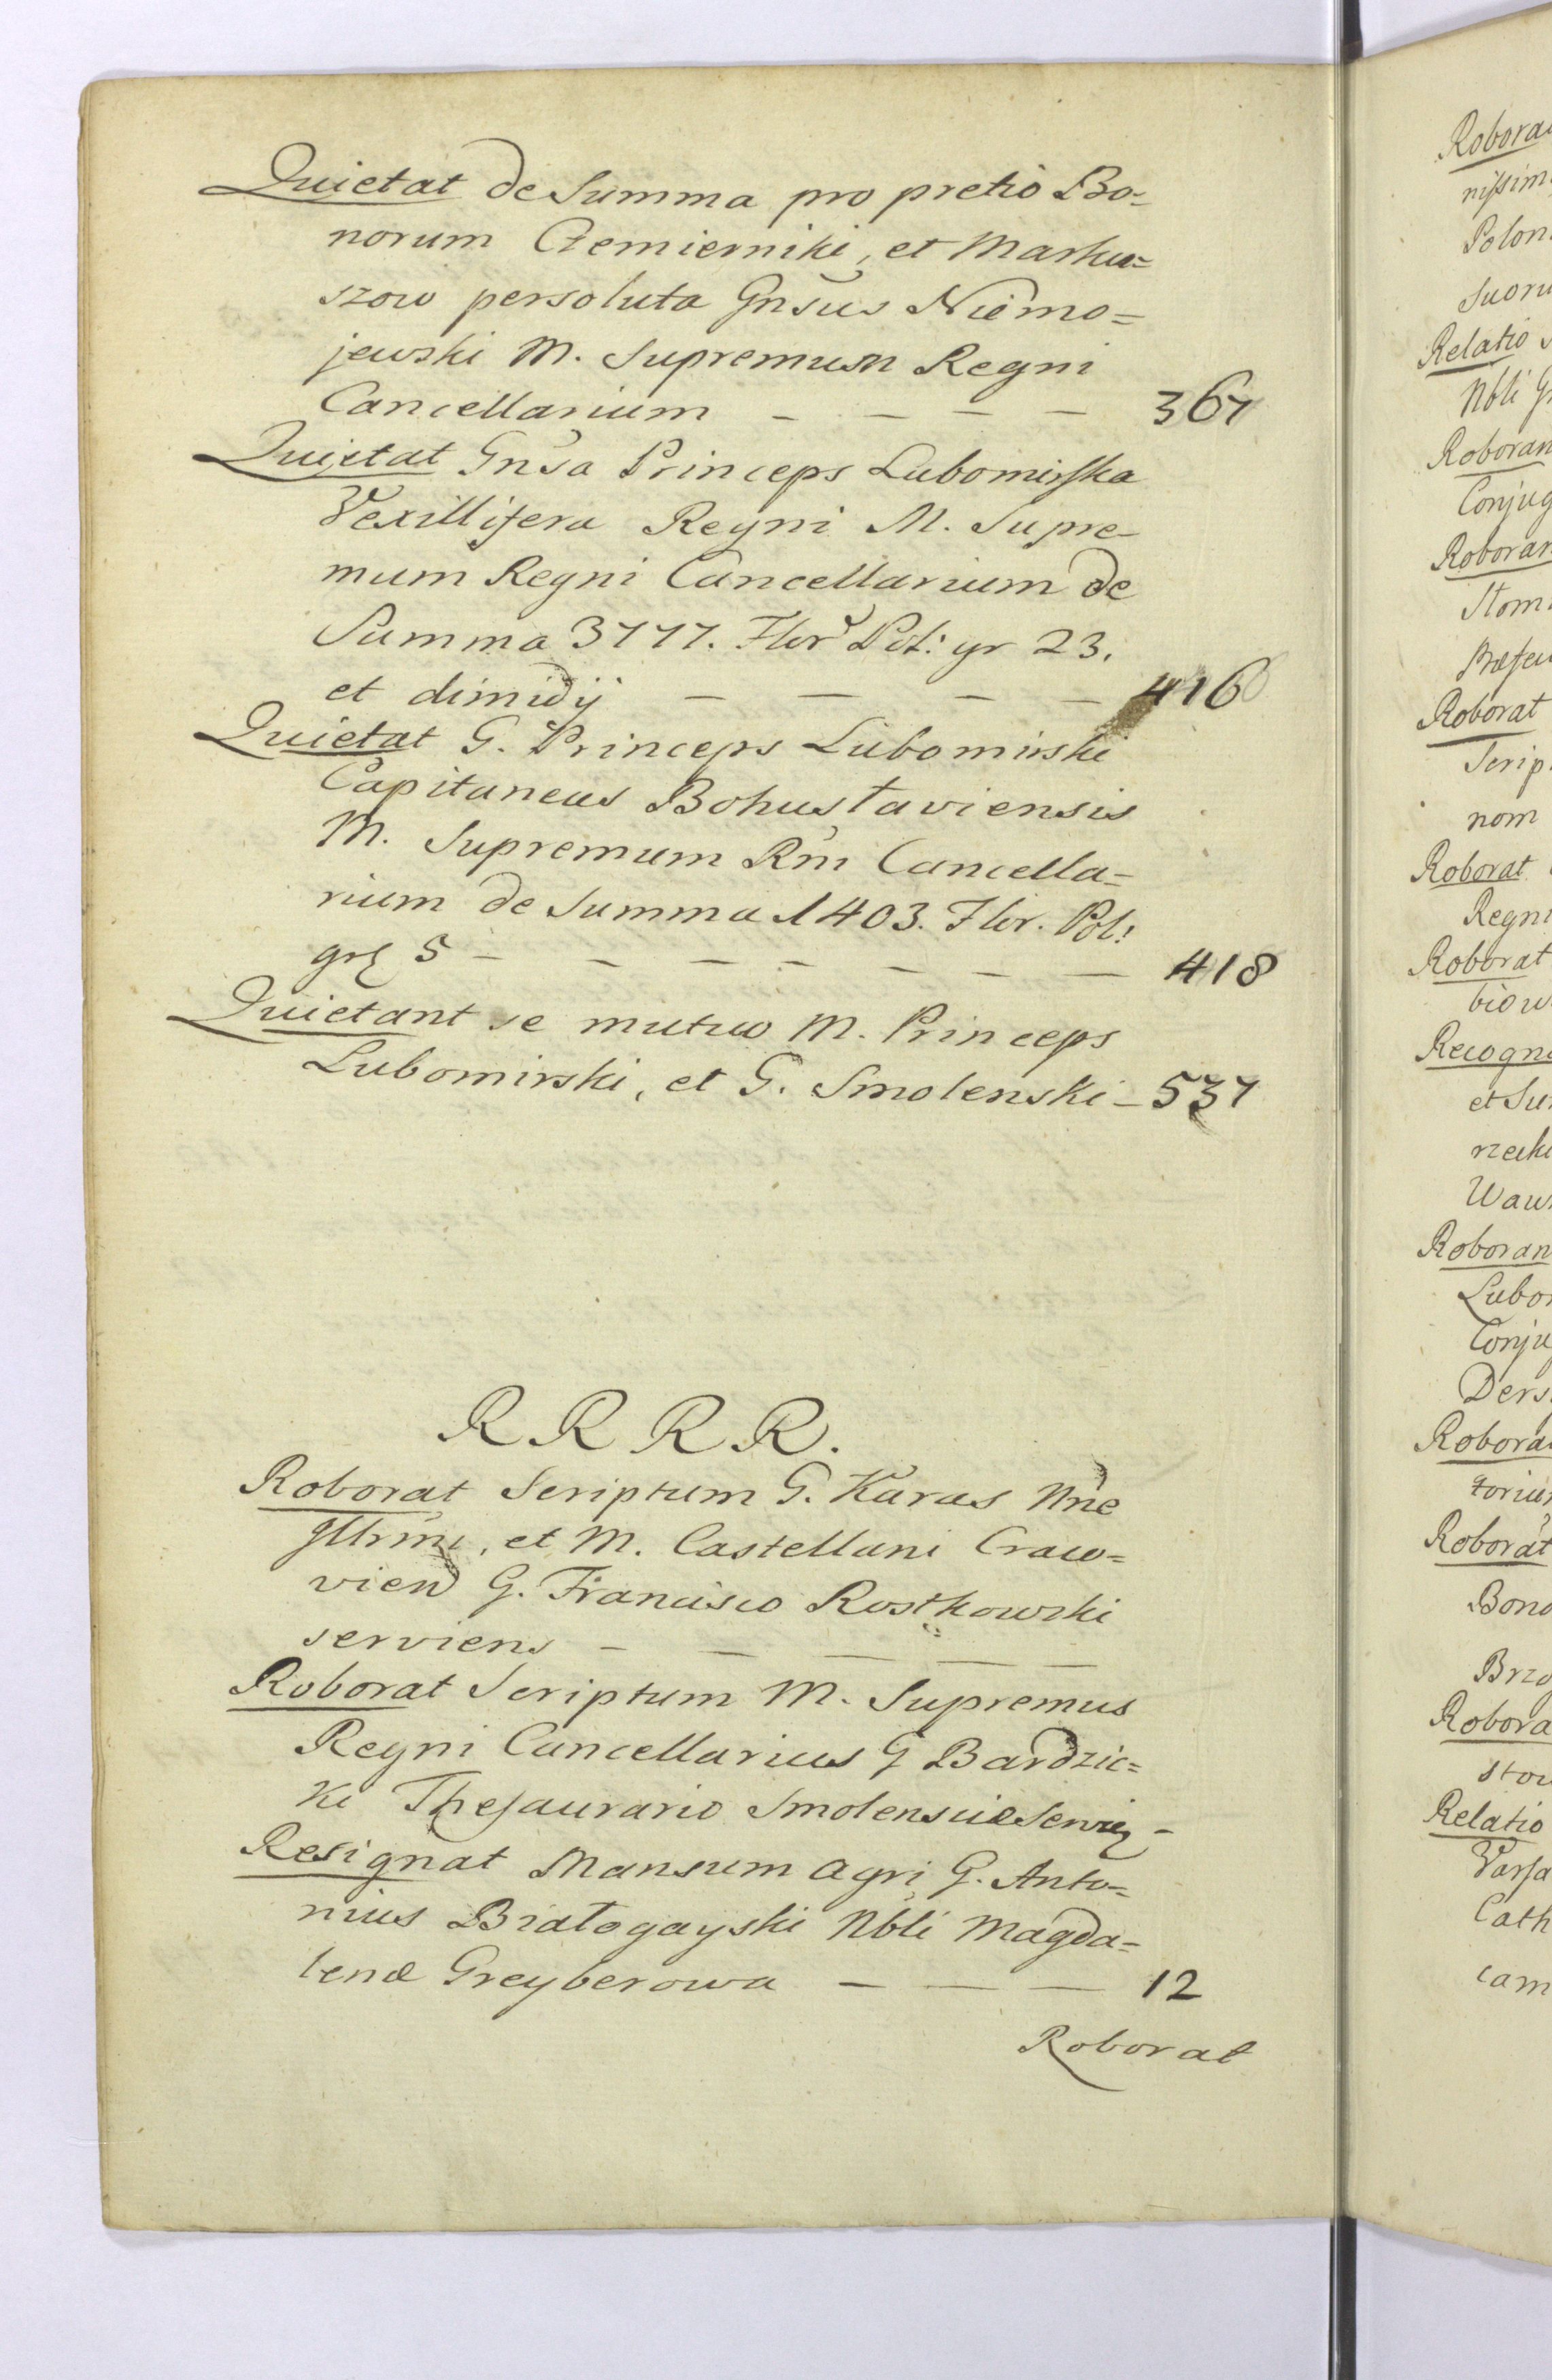 Quietat de Summa pro pretio Bo=
norum Czemierniki, et Markus=
szow persoluta Gnsus Niemo=
jewski M. Supremum Regni
Cancellarium - - - - 367
Quietat Gnsa Princeps Lubomirska
Vexillifera Regni M. Supre-
mum Regni Cancellarium de
Summa 3777. Flor Pol: gr 23.
et dimidij - - - - 416
Quietat G. Princeps Lubomirski
Capitaneus Bohuslaviensis
M. Supremum Rni Cancella=
rium de Summa 1403. Flor. Pol:
5 - - - - - - - 418
Quietant se mutuo M. Princeps
Lubomirski, et G. Smolenski - 537
R R R R.
Roborat Scriptum G. Karas
et M. Castellani Craco=
vien G. Francisco Rostkowski
serviens - - - - -
Roborat Scriptum M. Supremus
Regni Cancellarius G Bardzic=
ki Thesaurario Smolenscie -
Resignat Mansum agri G. Anto=
nius Białogayski Nbli Magda=
lenæ Greyberowa - - - 12
Roborat
Robora
nissim
Polon
Suoru
Relatio
Nbli G
Roboran
Conjug
Roboran
Stom
Præfec
Roborat
Scrip
nom
Roborat
Regni
Roborat
biow
Recogn
et Su
rzecki
Waw
Roboran
Lubo
Conju
Ders
Robora
toriu
Roborat
Bono
Brzo
Robora
stow
Relatio
Varsa
Cath
cam